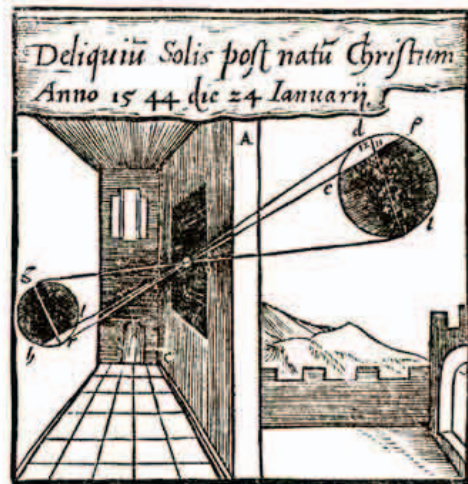 Deliquiū Solis post natū Christum
Anno 1544 die 24 Ianuarij.
A
d
p
12 11
e
i
g
f
h
k
c